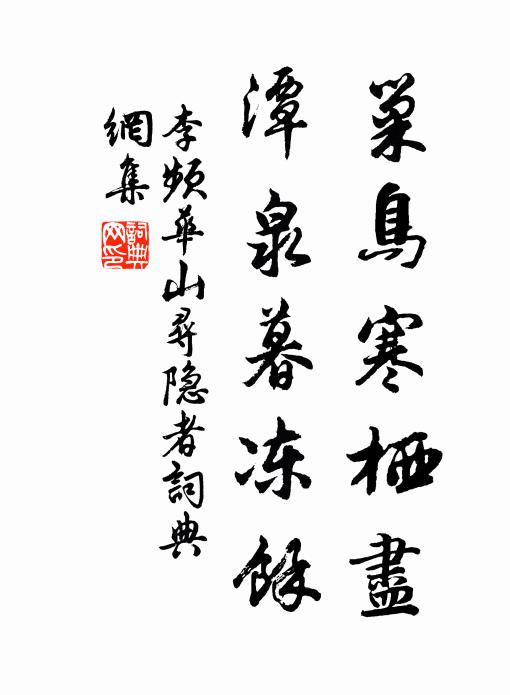 巢鳥寒栖盡
潭泉暮冻餘
李頻華山尋隐者詞典
網集
詞典
网印